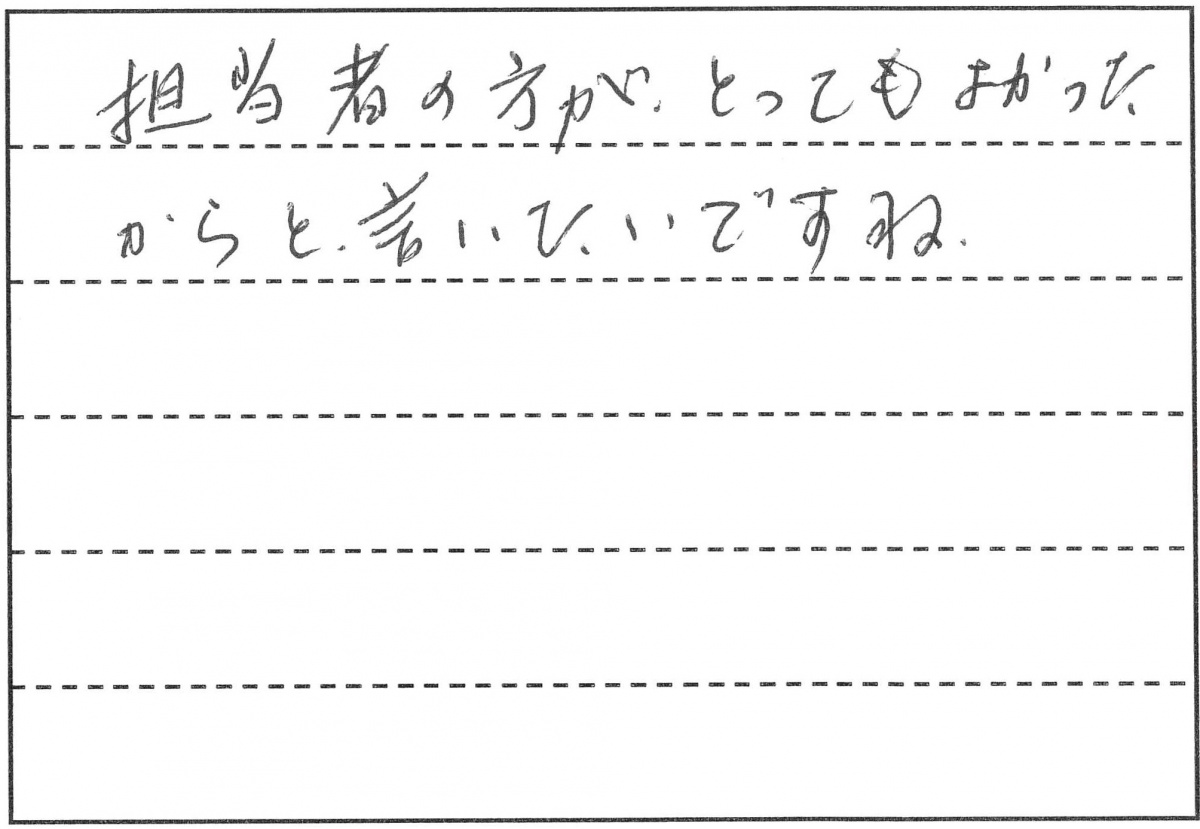 担当者の方が、とってもよかった
からと、言いたいですね.